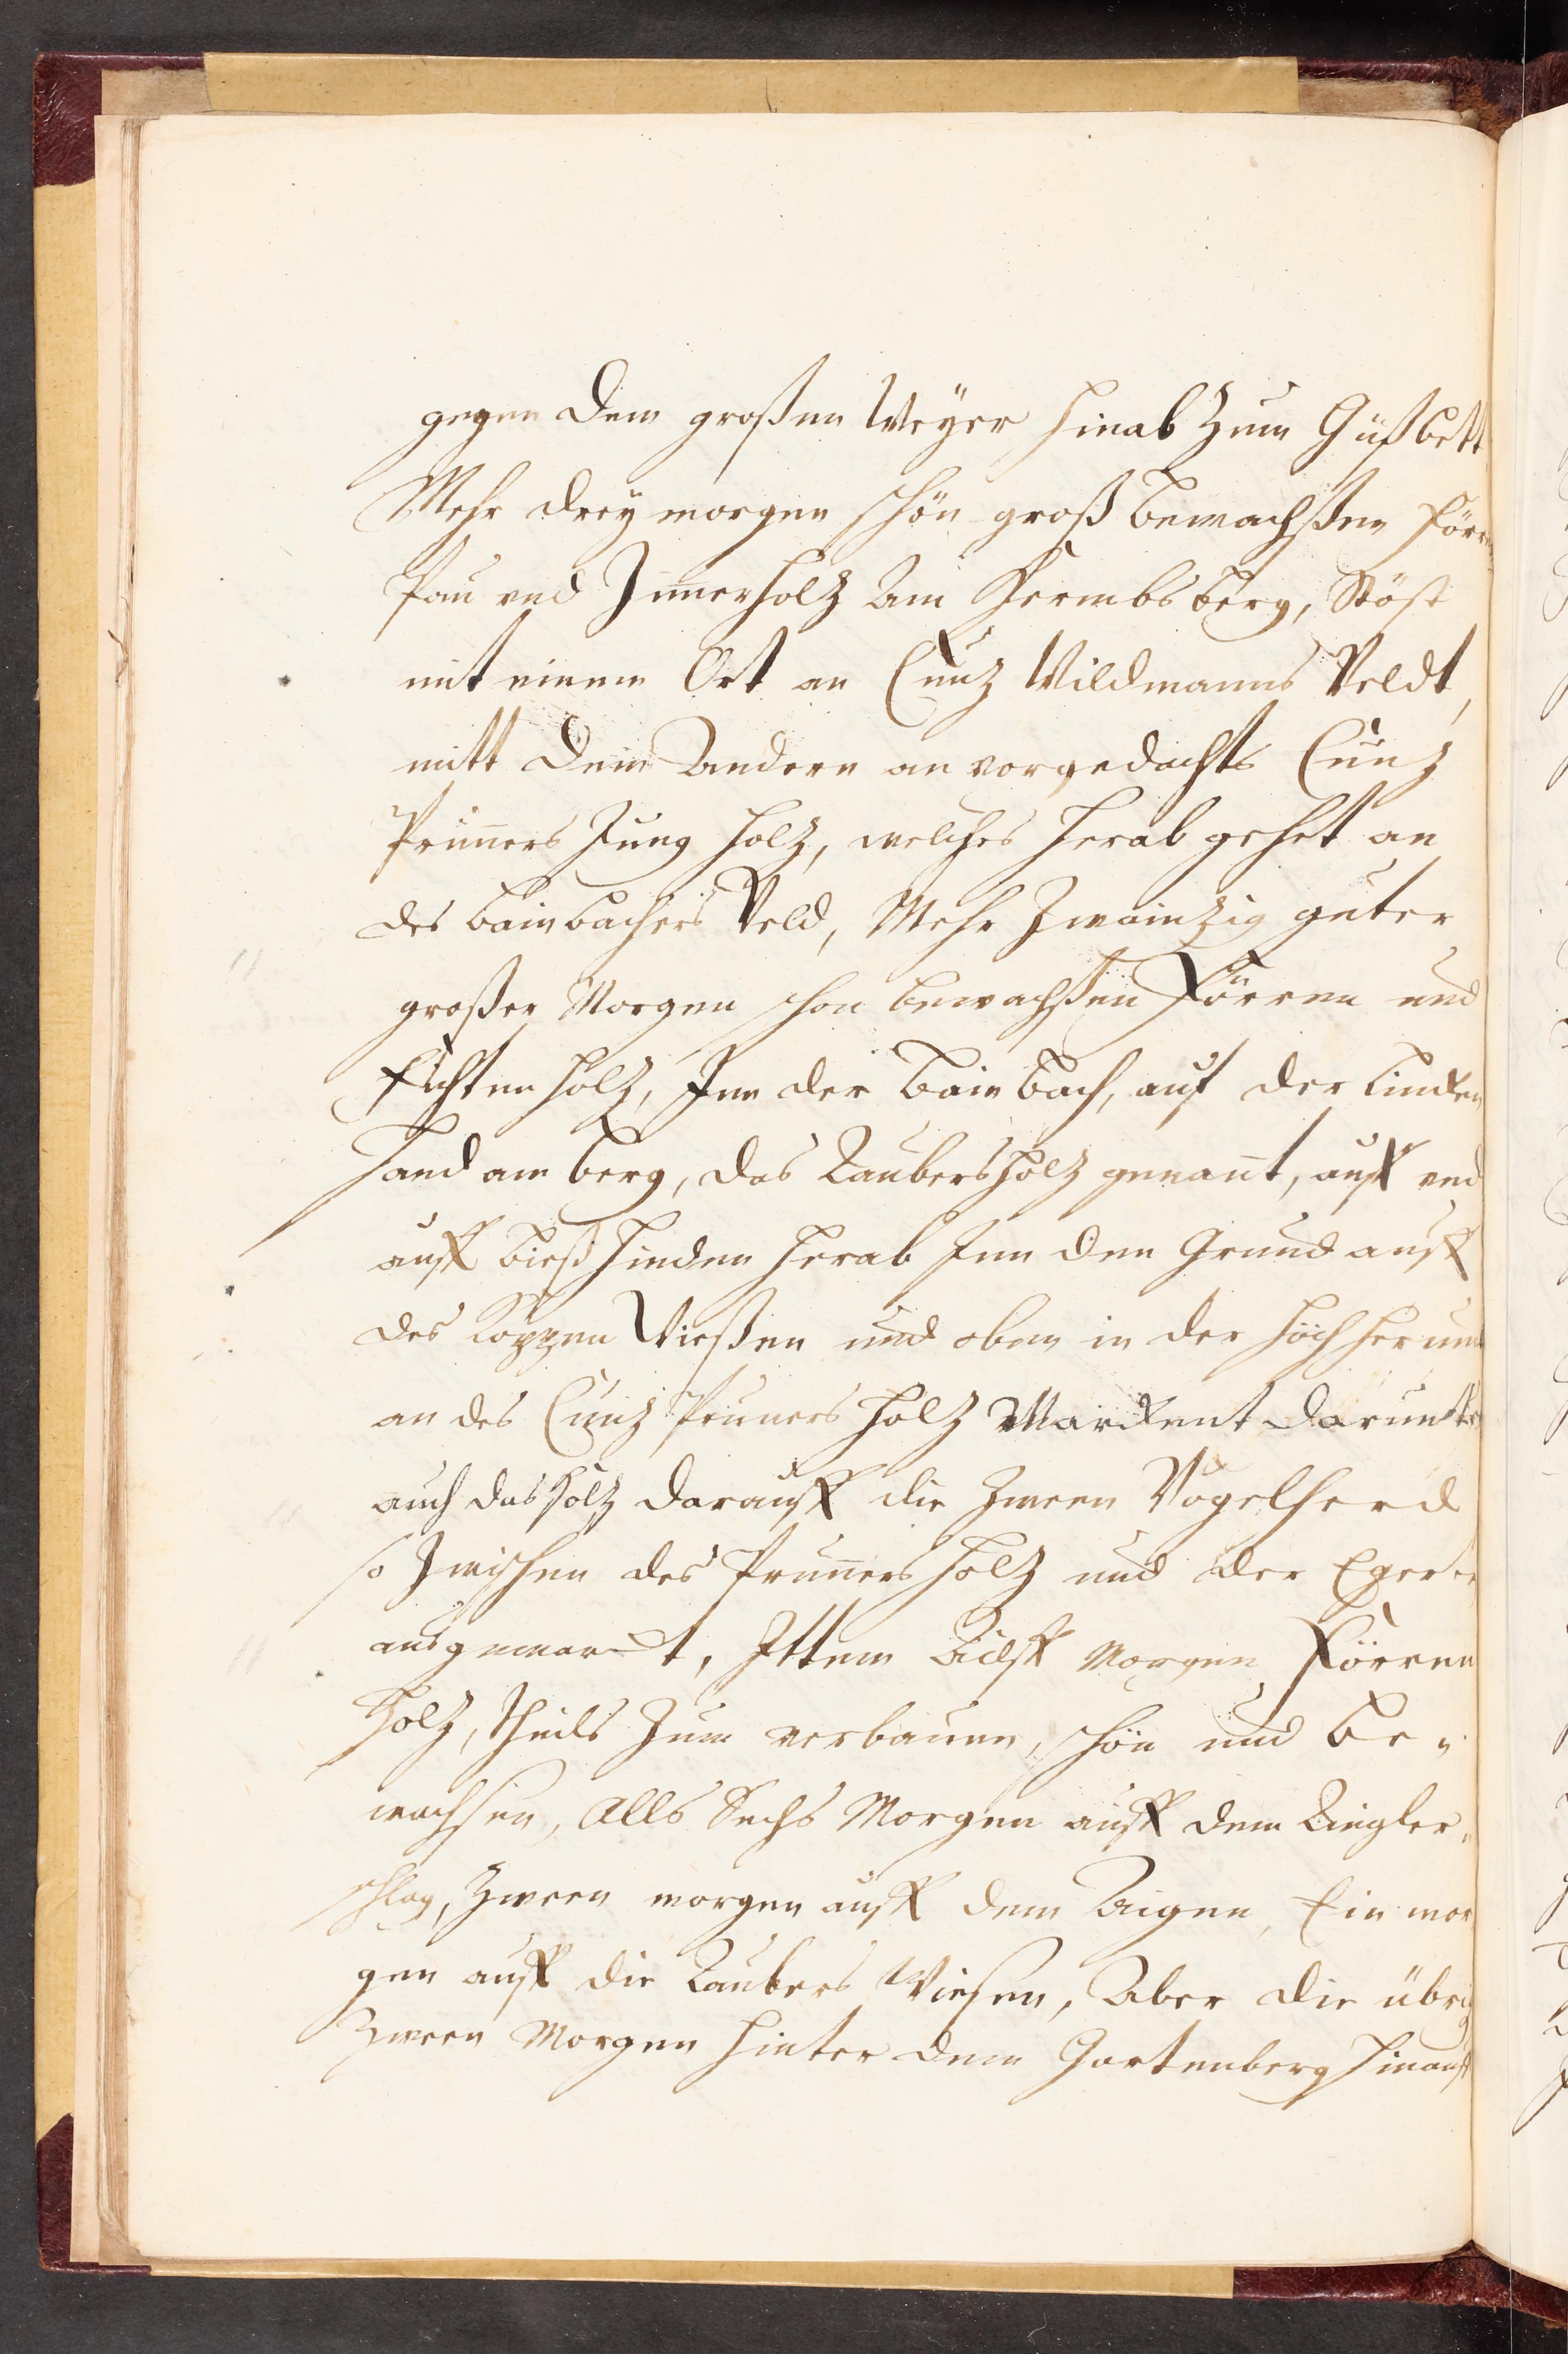 gegen dem großen Weÿer hinab zum Güßbett
Mehr dreÿ morgen schön groß bewachßen förren
Pau und Zimerholz Am Hermbs berg, Stöst
mit einem Ort an Cunz Wildmanns Veldt,
mitt dem Andern an vorgedachts Cunz
Pruners Jung holz, welches herab gehet an
des bainbachers Veld, Mehr Zwainzig guter
großer Morgen schon bewachßen Förren und
Fichten holz, Inn der bainbach, auf der lincken
Hand am berg, das Laubersholz genant, auff und
auff bieß hinden herab Inn den Grund auff
des Koppen Wießen und oben in der höch herumb
an des Cunz Pruners holz Marckent darunter
auch das holz darauff die Zween Vogelherd
so Zwischen des Pruners holz und der Egerten
ausgemarckt, Ittem Ailff Morgen Förren
Holz, theils Zum verbauen, schön und be-
wachsen, Alls Sechs Morgen auff dem Ziegler-
schlag, Zween morgen auff dem Aigen, Ein mor
gen auff die Laubers Wiesen, Aber die übrig
Zween Morgen hinter dem Gartenberg hinauf